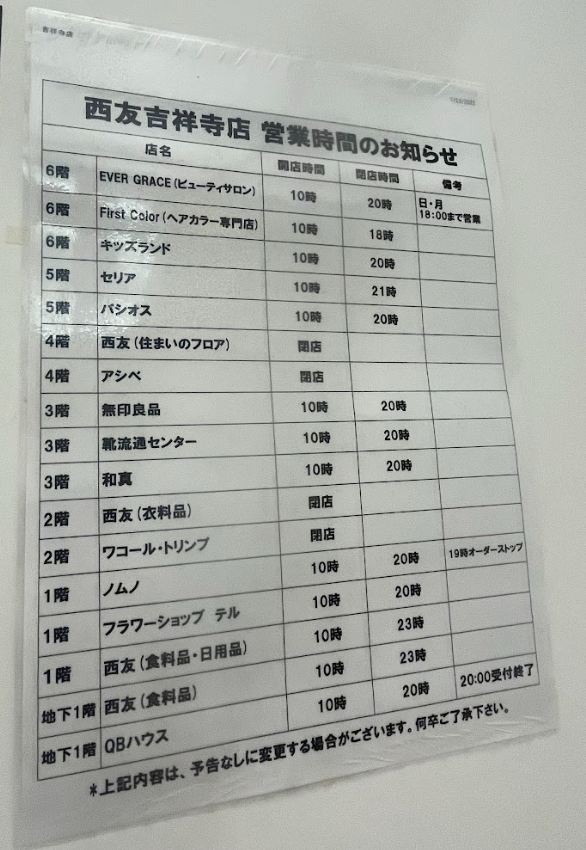 吉祥寺店
西友吉祥寺店 営業時間のお知らせ
店名 開店時間 閉店時間 備考
6階 EVER GRACE(ビューティサロン) 10時 20時 日・月 18:00まで営業
6階 First Color(ヘアカラー専門店) 10時 18時
6階 キッズランド 10時 20時
5階 セリア 10時 21時
5階 パシオス 10時 20時
4階 西友(住まいのフロア) 閉店
4階 アシベ 閉店
3階 無印良品 10時 20時
3階 靴流通センター 10時 20時
3階 和真 10時 20時
2階 西友(衣料品) 閉店
2階 ワコール・トリンプ 閉店
1階 ノムノ 10時 20時 19時オーダーストップ
1階 フラワーショップ テル 10時 20時
1階 西友(食料品・日用品) 10時 23時
地下1階 西友(食料品) 10時 23時
地下1階 QBハウス 10時 20時 20:00受付終了
*上記内容は、予告なしに変更する場合がございます。何卒ご了承下さい。